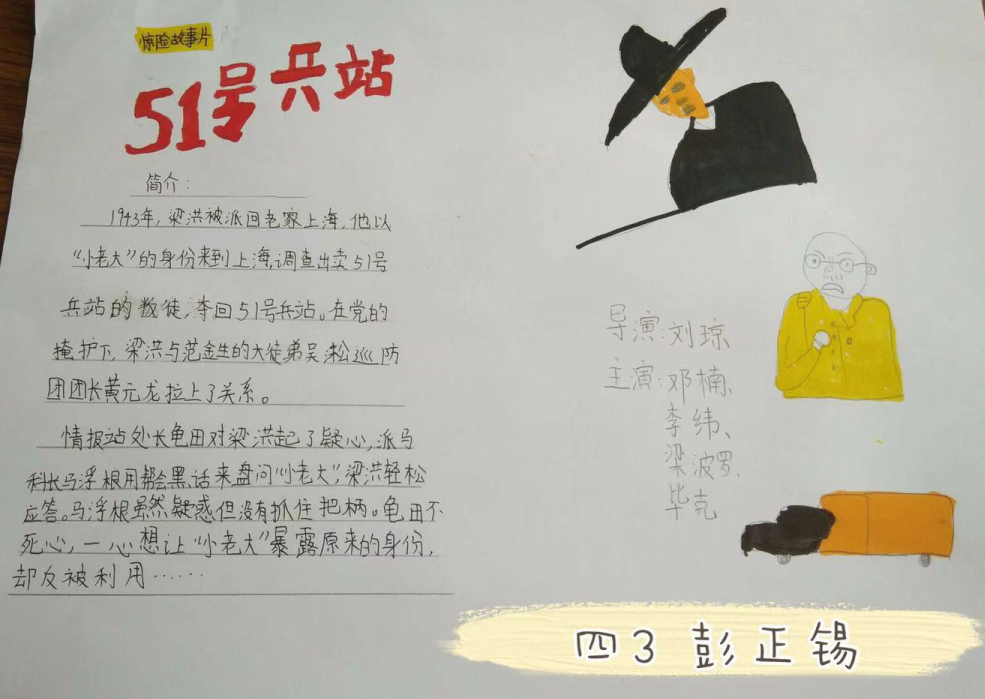 惊险故事片
51号兵站
简介:
1943年,梁洪被派回老家上海,他以
“小老大”的身份来到上海,调查出卖51号
兵站的叛徒,夺回51号兵站。在党的
掩护下,梁洪与范金生的大徒弟吴淞巡防
团团长黄元龙拉上了关系。
情报站处长龟田对梁洪起了疑心,派马
科长马浮根用帮会黑话来盘问“小老大”,梁洪轻松
应答。马浮根虽然疑惑但没有抓住把柄。龟田不
死心,一心想让“小老大”暴露原来的身份,
却反被利用……
导演:刘琼
主演:邓楠、
李纬、
梁波罗、
毕克
四3 彭正锡